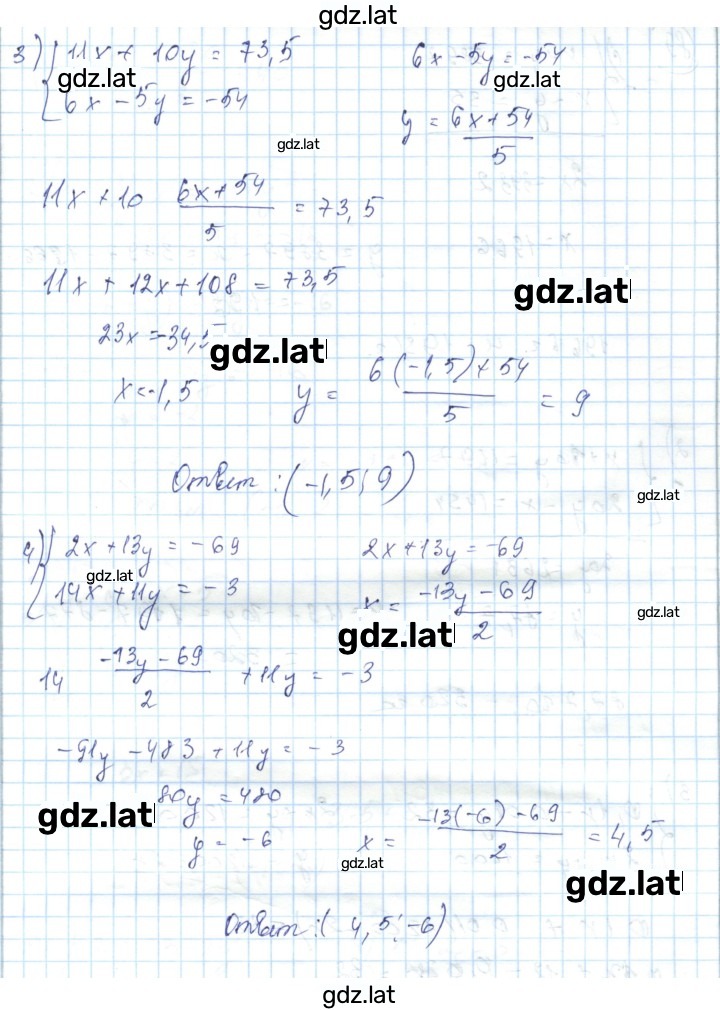 gdz.lat
3) { 11x + 10y = 73,5    6x - 5y = -54
gdz.lat    gdz.lat
6x - 5y = -54    y = (6x + 54)/5
gdz.lat
11x + 10 (6x + 54)/5 = 73,5
11x + 12x + 108 = 73,5
gdz.lat
23x = -34,5
gdz.lat
x = -1,5    y = (6(-1,5) + 54)/5 = 9
Ответ: (-1,5; 9)
gdz.lat
4) { 2x + 13y = -69    2x + 13y = -69
gdz.lat
14x + 11y = -3    x = (-13y - 69)/2
gdz.lat
gdz.lat
14 (-13y - 69)/2 + 11y = -3
-91y - 483 + 11y = -3
80y = 480
gdz.lat
y = -6    x = (-13(-6) - 69)/2 = 4,5
gdz.lat
gdz.lat
Ответ: (4,5; -6)
gdz.lat